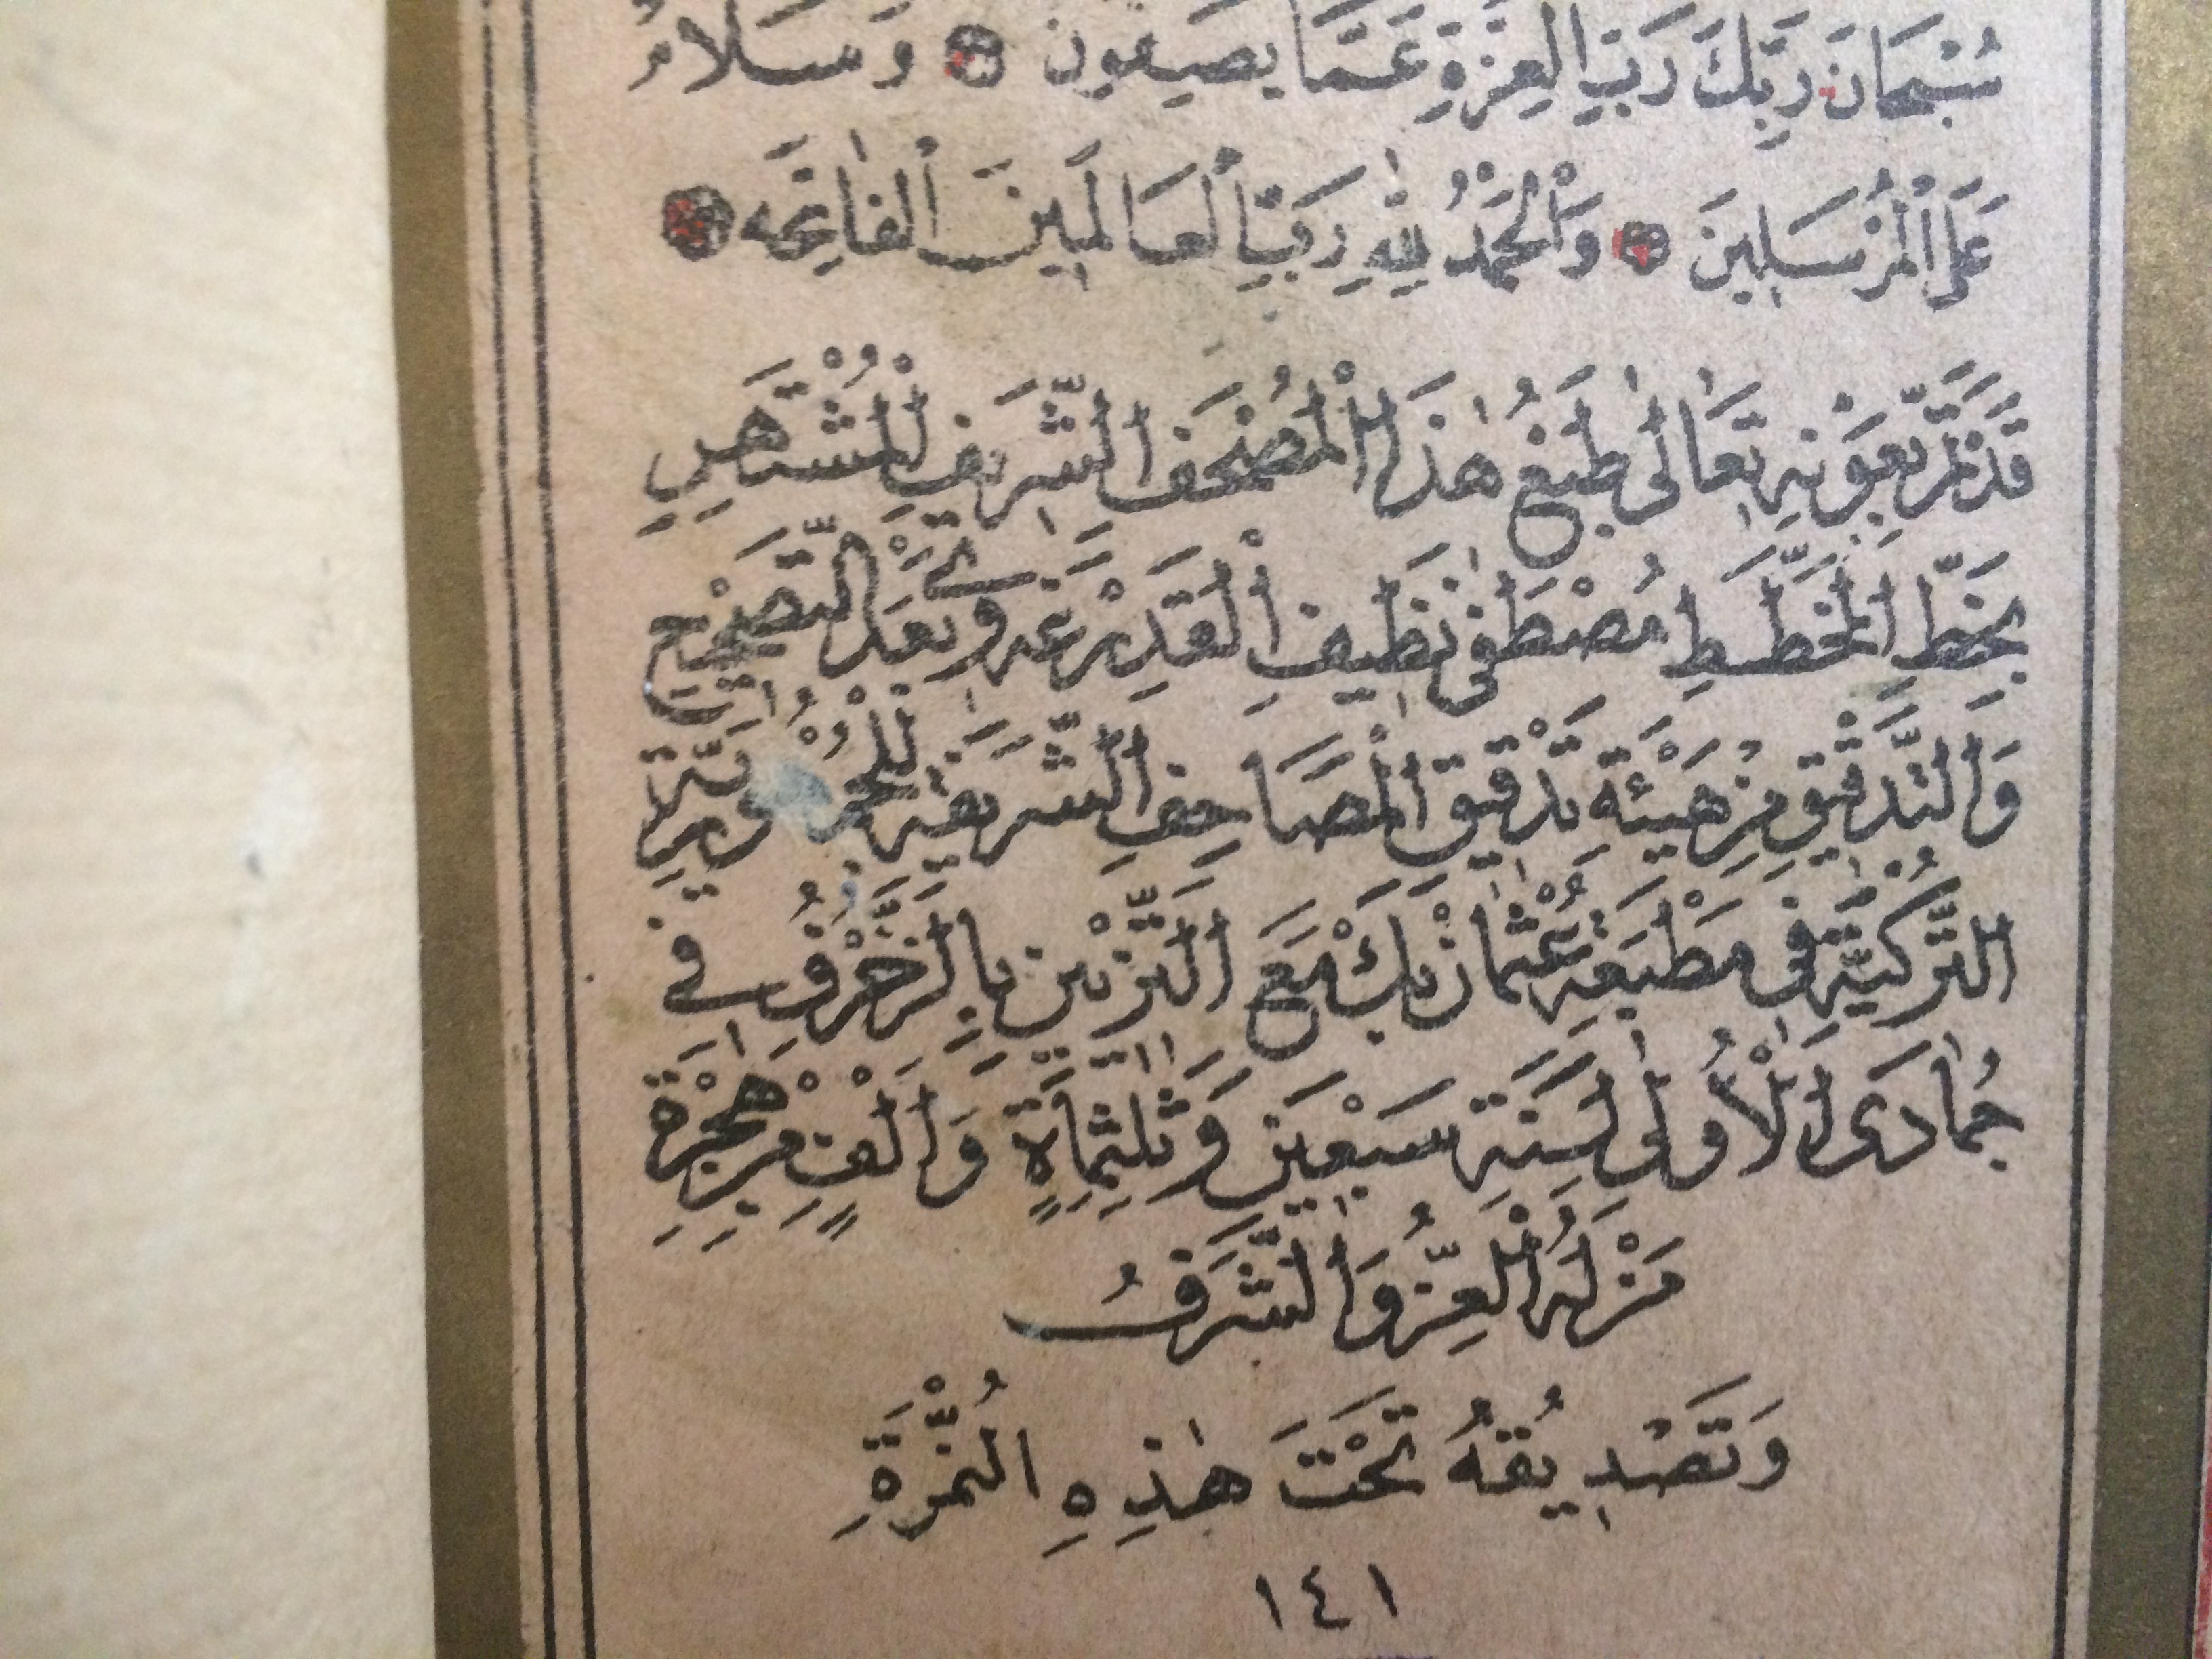 سُبْحَانَ رَبِّكَ رَبِّ الْعِزَّةِ عَمَّا يَصِفُونَ وَسَلَامٌ
عَلَى الْمُرْسَلِينَ وَالْحَمْدُ لِلّٰهِ رَبِّ الْعَالَمِينَ الْفَاتِحَه
قَدْ تَمَّ بِعَوْنِهِ تَعَالٰى طَبْعُ هٰذَا الْمُصْحَفِ الشَّرِيفِ الْمُشْتَهِرِ
بِخَطِّ الْخَطَّاطِ مُصْطَفٰى نَظِيفِ الْقَدِرْغَهوِى بَعْدَ التَّصْحِيحِ
وَالتَّدْقِيقِ مِنْ هَيْئَةِ تَدْقِيقِ الْمَصَاحِفِ الشَّرِيفَةِ لِلْجُمْهُورِيَّةِ
التُّرْكِيَّةِ فِى مَطْبَعَةِ عُثْمَانْ بَكْ مَعَ التَّزْيِينِ بِالزَّخْرُفِ فِى
جُمَادَى الْأُولٰى لِسَنَةِ سَبْعِينَ وَثَلٰثِمِائَةٍ وَاَلْفٍ مِنْ هِجْرَةِ
مَنْ لَهُ الْعِزُّ وَالشَّرَفُ
وَتَصْدِيقُهُ تَحْتَ هٰذِهِ النُّمْرَةِ
١٤١